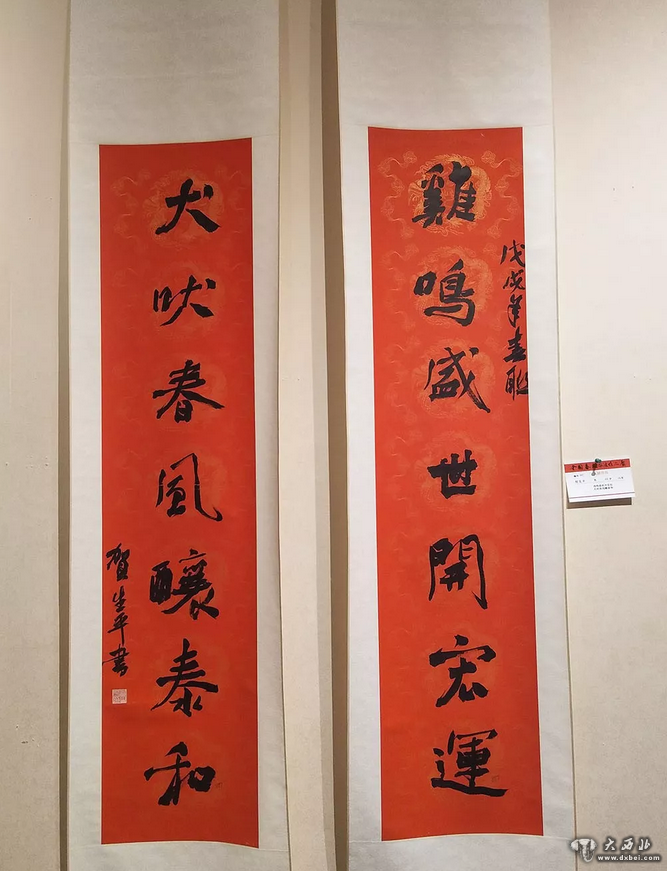 戊戌年春聯
雞鳴盛世開宏運
犬吠春風釀泰和
賀生平書
大西北
www.dxbei.com